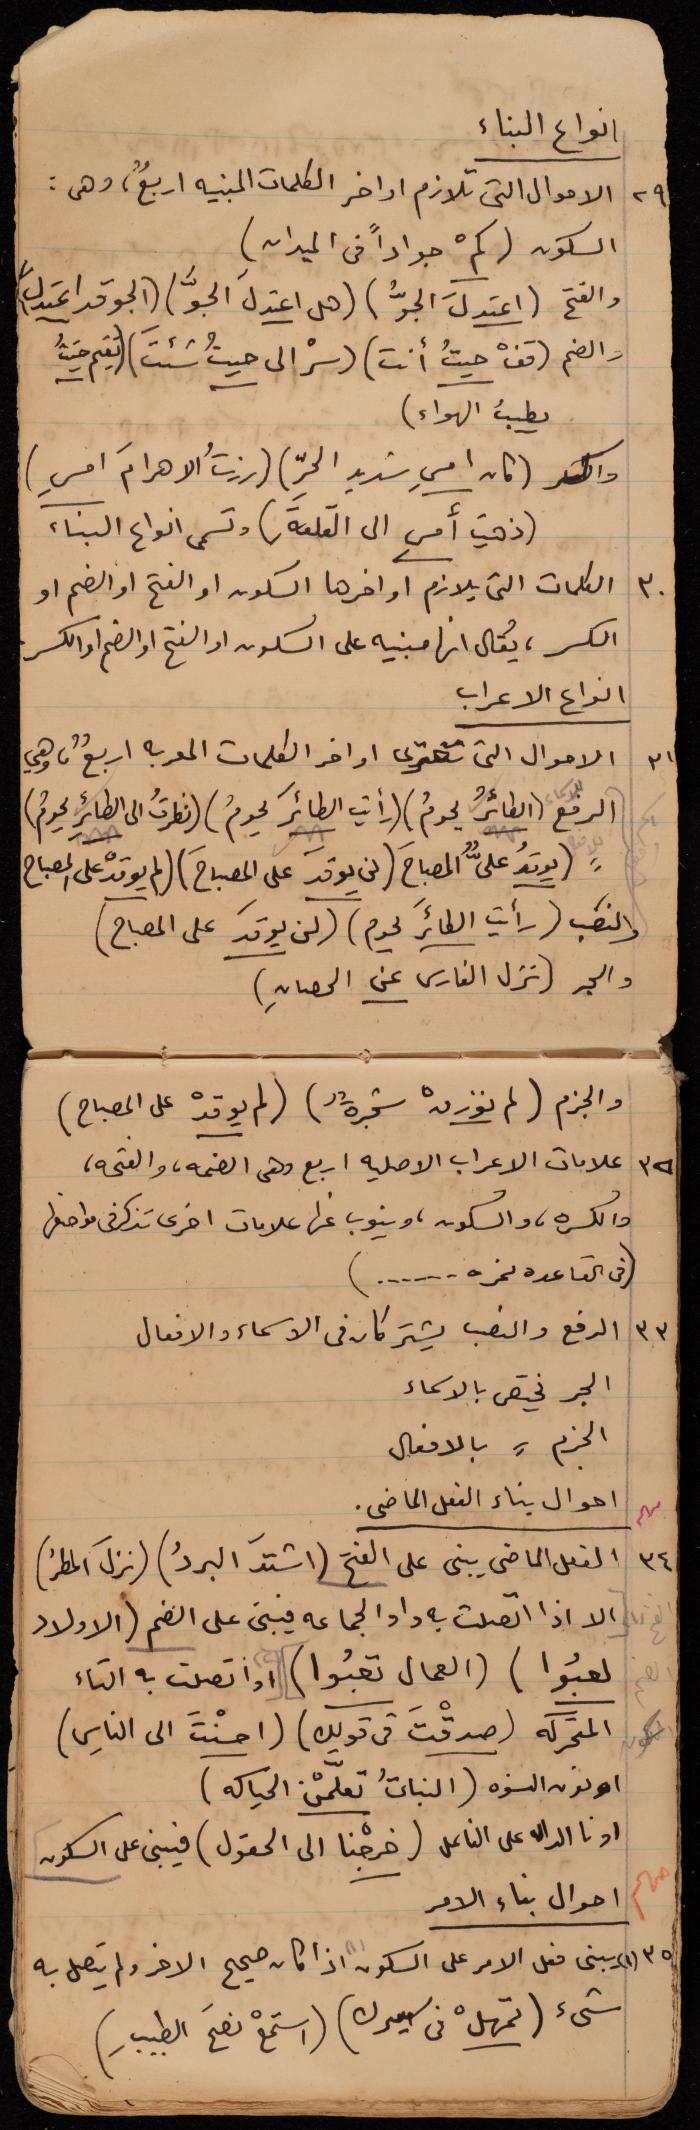 انواع البناء
٢٩ الاحوال التى تلازم اواخر الكلمات المبنيه اربعٌ، وهى :
السكون (كمْ جواداً فى الميدان)
والفتح (اعتدلَ الجوُّ) (هل اعتدلَ الجوُّ) (الجو قد اعتدلَ)
والضم (قفْ حيثُ أنت) (سرْ الى حيثُ شئتَ) (نقيم حيثُ
يطيبُ الهواء)
والكسر (كان امسِ شديد الحرّ) (زرتُ الاهرامَ امسِ)
(ذهبت أمسِ الى القلعةِ) وتسمى انواع البناء
٣٠ الكلمات التى يلازم اواخرها السكون او الفتح او الضم او
الكسر ، يُقال انها مبنيه على السكون او الفتح او الضم او الكسر.
انواع الاعراب
٣١ الاحوال التى تعترى اواخر الكلمات المعربه اربعٌ، وهي
الرفع (الطائرُ يحومُ) (رأيت الطائرَ يحومُ) (نظرتُ الى الطائرِ يحومُ)
〃 (يوقدُ علىٌّ المصباحَ) (لن يوقدَ على المصباحَ) (لم يوقدْ على المصباح
والنصب (رأيت الطائرَ يحوم) (لن يوقدَ على المصباح)
والجر (نزل الفارس عن الحصانِ)
والجزم (لم يوقدْ على المصباح)
٣٢ علامات الاعراب الاصليه اربع وهى الضمه، والفتحه،
والكسره، والسكون، وينوب عنها علامات اخرى تذكر فى مواضعها
(فى القاعده نمره .......)
٣٣ الرفع والنصب يشتركان فى الاسماء والافعال
الجر يختص بالاسماء
الجزم 〃 بالافعال
مهم احوال بناء الفعل الماضى .
٣٤ الفعل الماضى يبنى على الفتح (اشتدَّ البردُ) (نزلَ المطرُ)
الا اذا اتصلت به واو الجماعه فيبنى على الضم (الاولاد
لعبُوا) (العمال تعبُوا) او اتصلت به التاء
المتحركه (صدقْتَ فى قولِك) (احسنْتَ الى الناسِ)
او نون النسوه (البناتُ تعلَّمْنَ الحياكه)
او نا الداله على الفاعل (خرجْنا الى الحقول) فيبنى على السكون
مهم احوال بناء الامر
٣٥ (١) يبنى فعل الامر على السكون اذا كان صحيح الاخر ولم يتصل به
شىء (تمهلْ فى سيرك) (استمعْ نصحَ الطبيبِ)